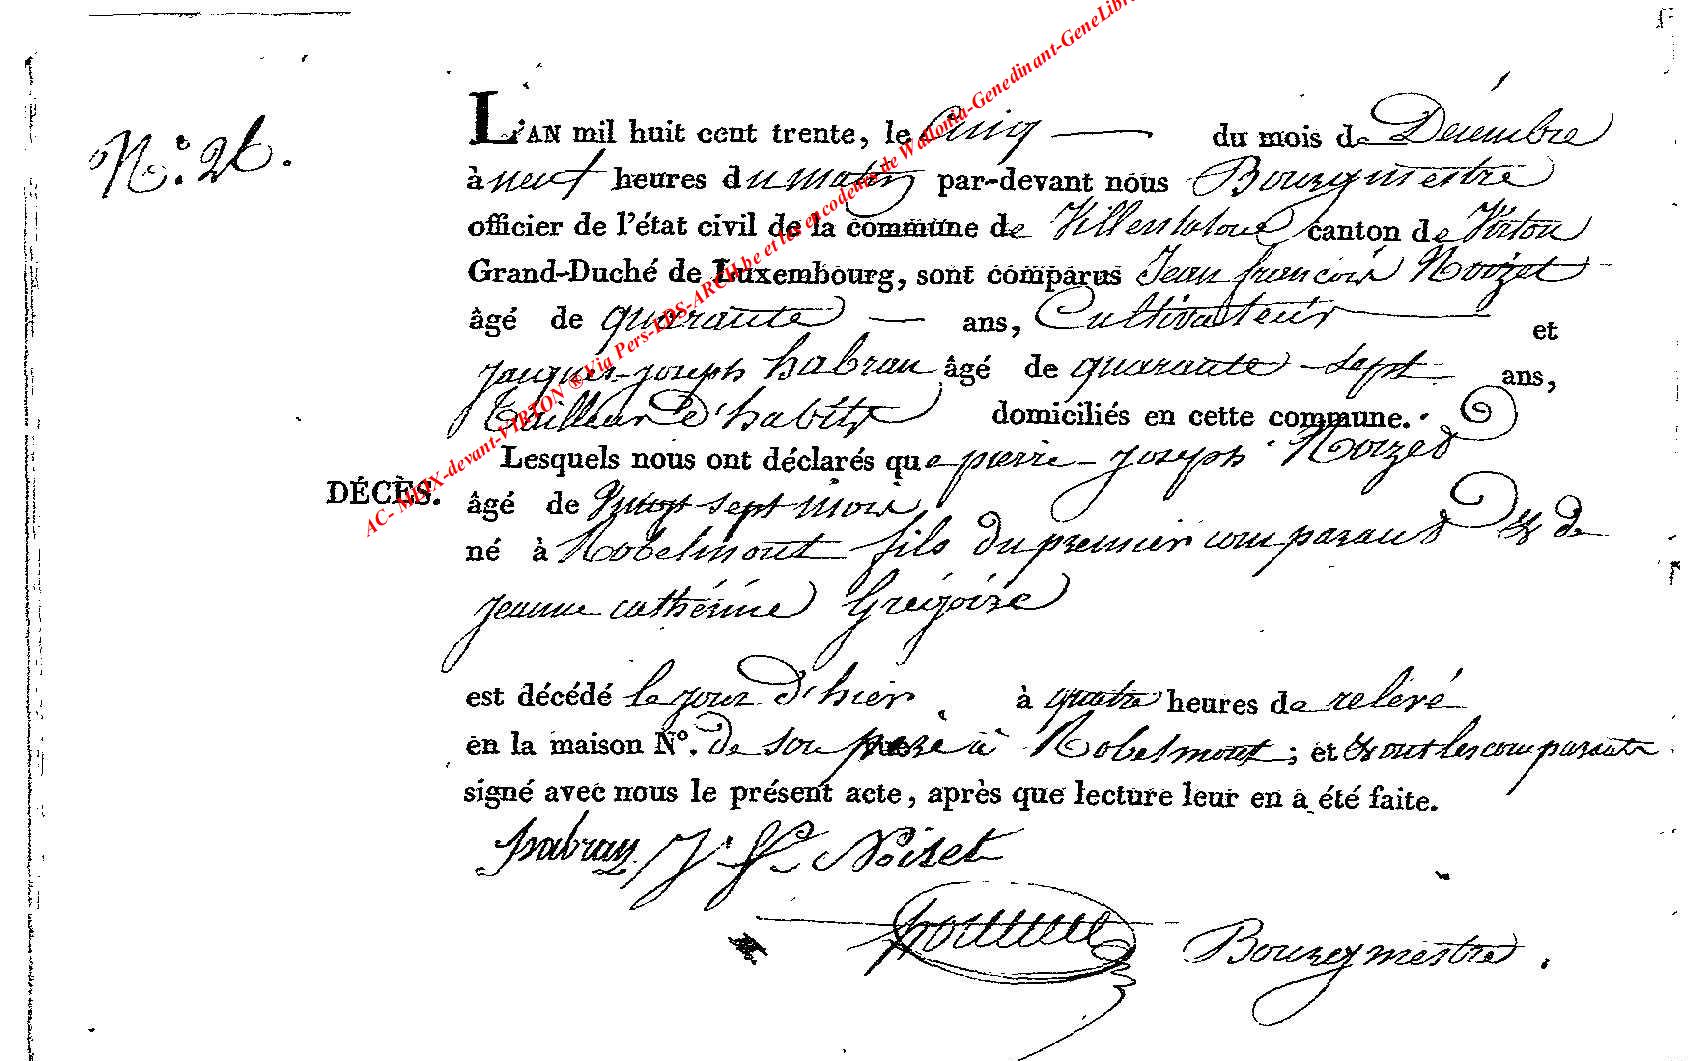 N.o 26.
L'AN mil huit cent trente, le Cinq du mois de Décembre
à neuf heures du matin par-devant nous Bourgmestre
officier de l'état civil de la commune de Villers la loue canton de Virton
Grand-Duché de Luxembourg, sont comparus Jean françois Noizet
âgé de quarante ans, Cultivateur et
jacques-joseph habran âgé de quarante-sept ans,
Tailleur d'habits domiciliés en cette commune.
Lesquels nous ont déclarés que pierre-joseph Noizet
DÉCÈS. âgé de vingt sept mois
né à Robelmont fils du premier comparant et de
jeanne cathérine Grégoire
est décédé le jour d'hier à quatre heures de relevé
en la maison No. de son père à Robelmont; et ont les comparants
signé avec nous le présent acte, après que lecture leur en a été faite.
habran J f Noiset
Bourgmestre.
AC- MEIX-devant-VIRTON ® Via Pers-LDS-ARCH.be et les encodeurs de Wallonia-Genedinant-GeneLibre